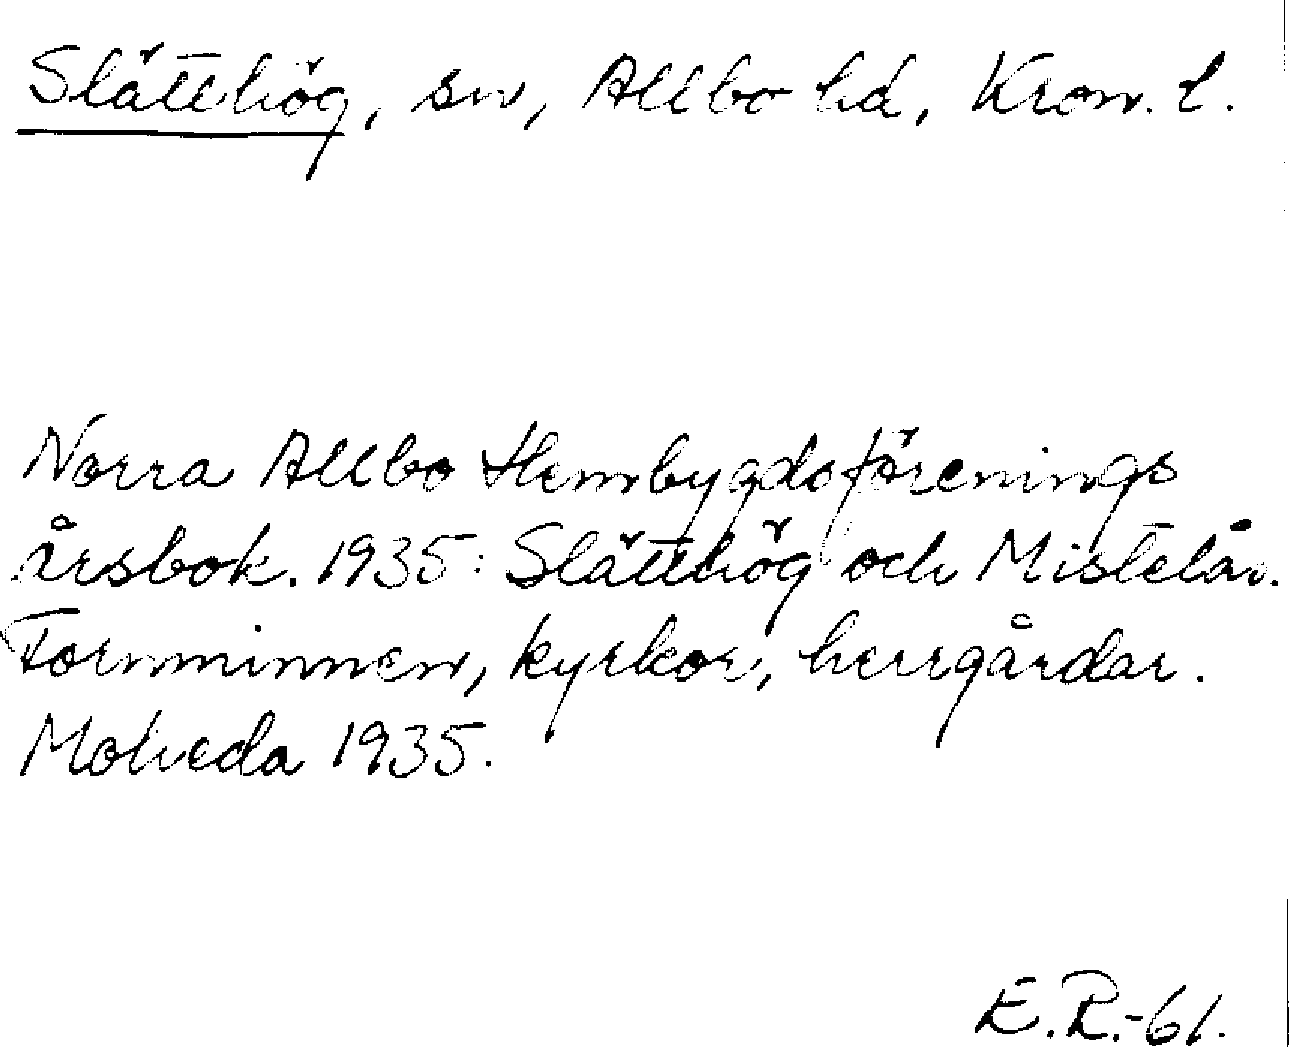 Slätthög, sn, Allbo hd, Kron. l.
Norra Allbo Hembygdsförenings
årsbok. 1935: Slätthög och Mistelås.
Fornminnen, kyrkor, herrgårdar.
Moheda 1935.
E.R.-61.